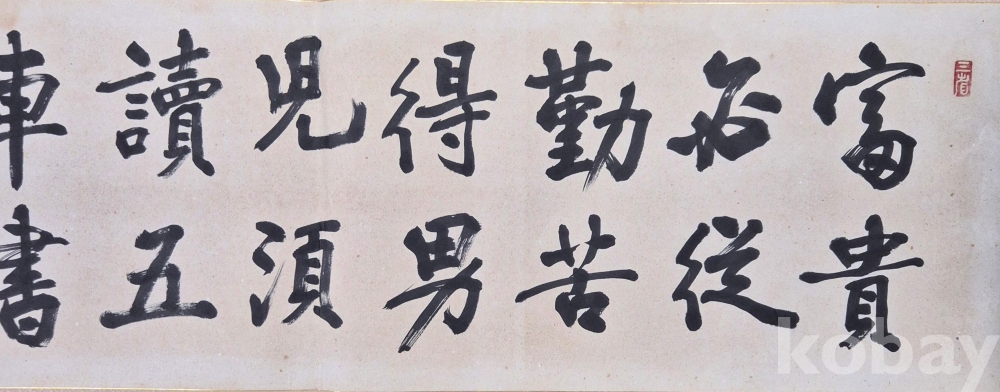 富貴
必從
勤苦
得男
児須
讀五
車書
kobay